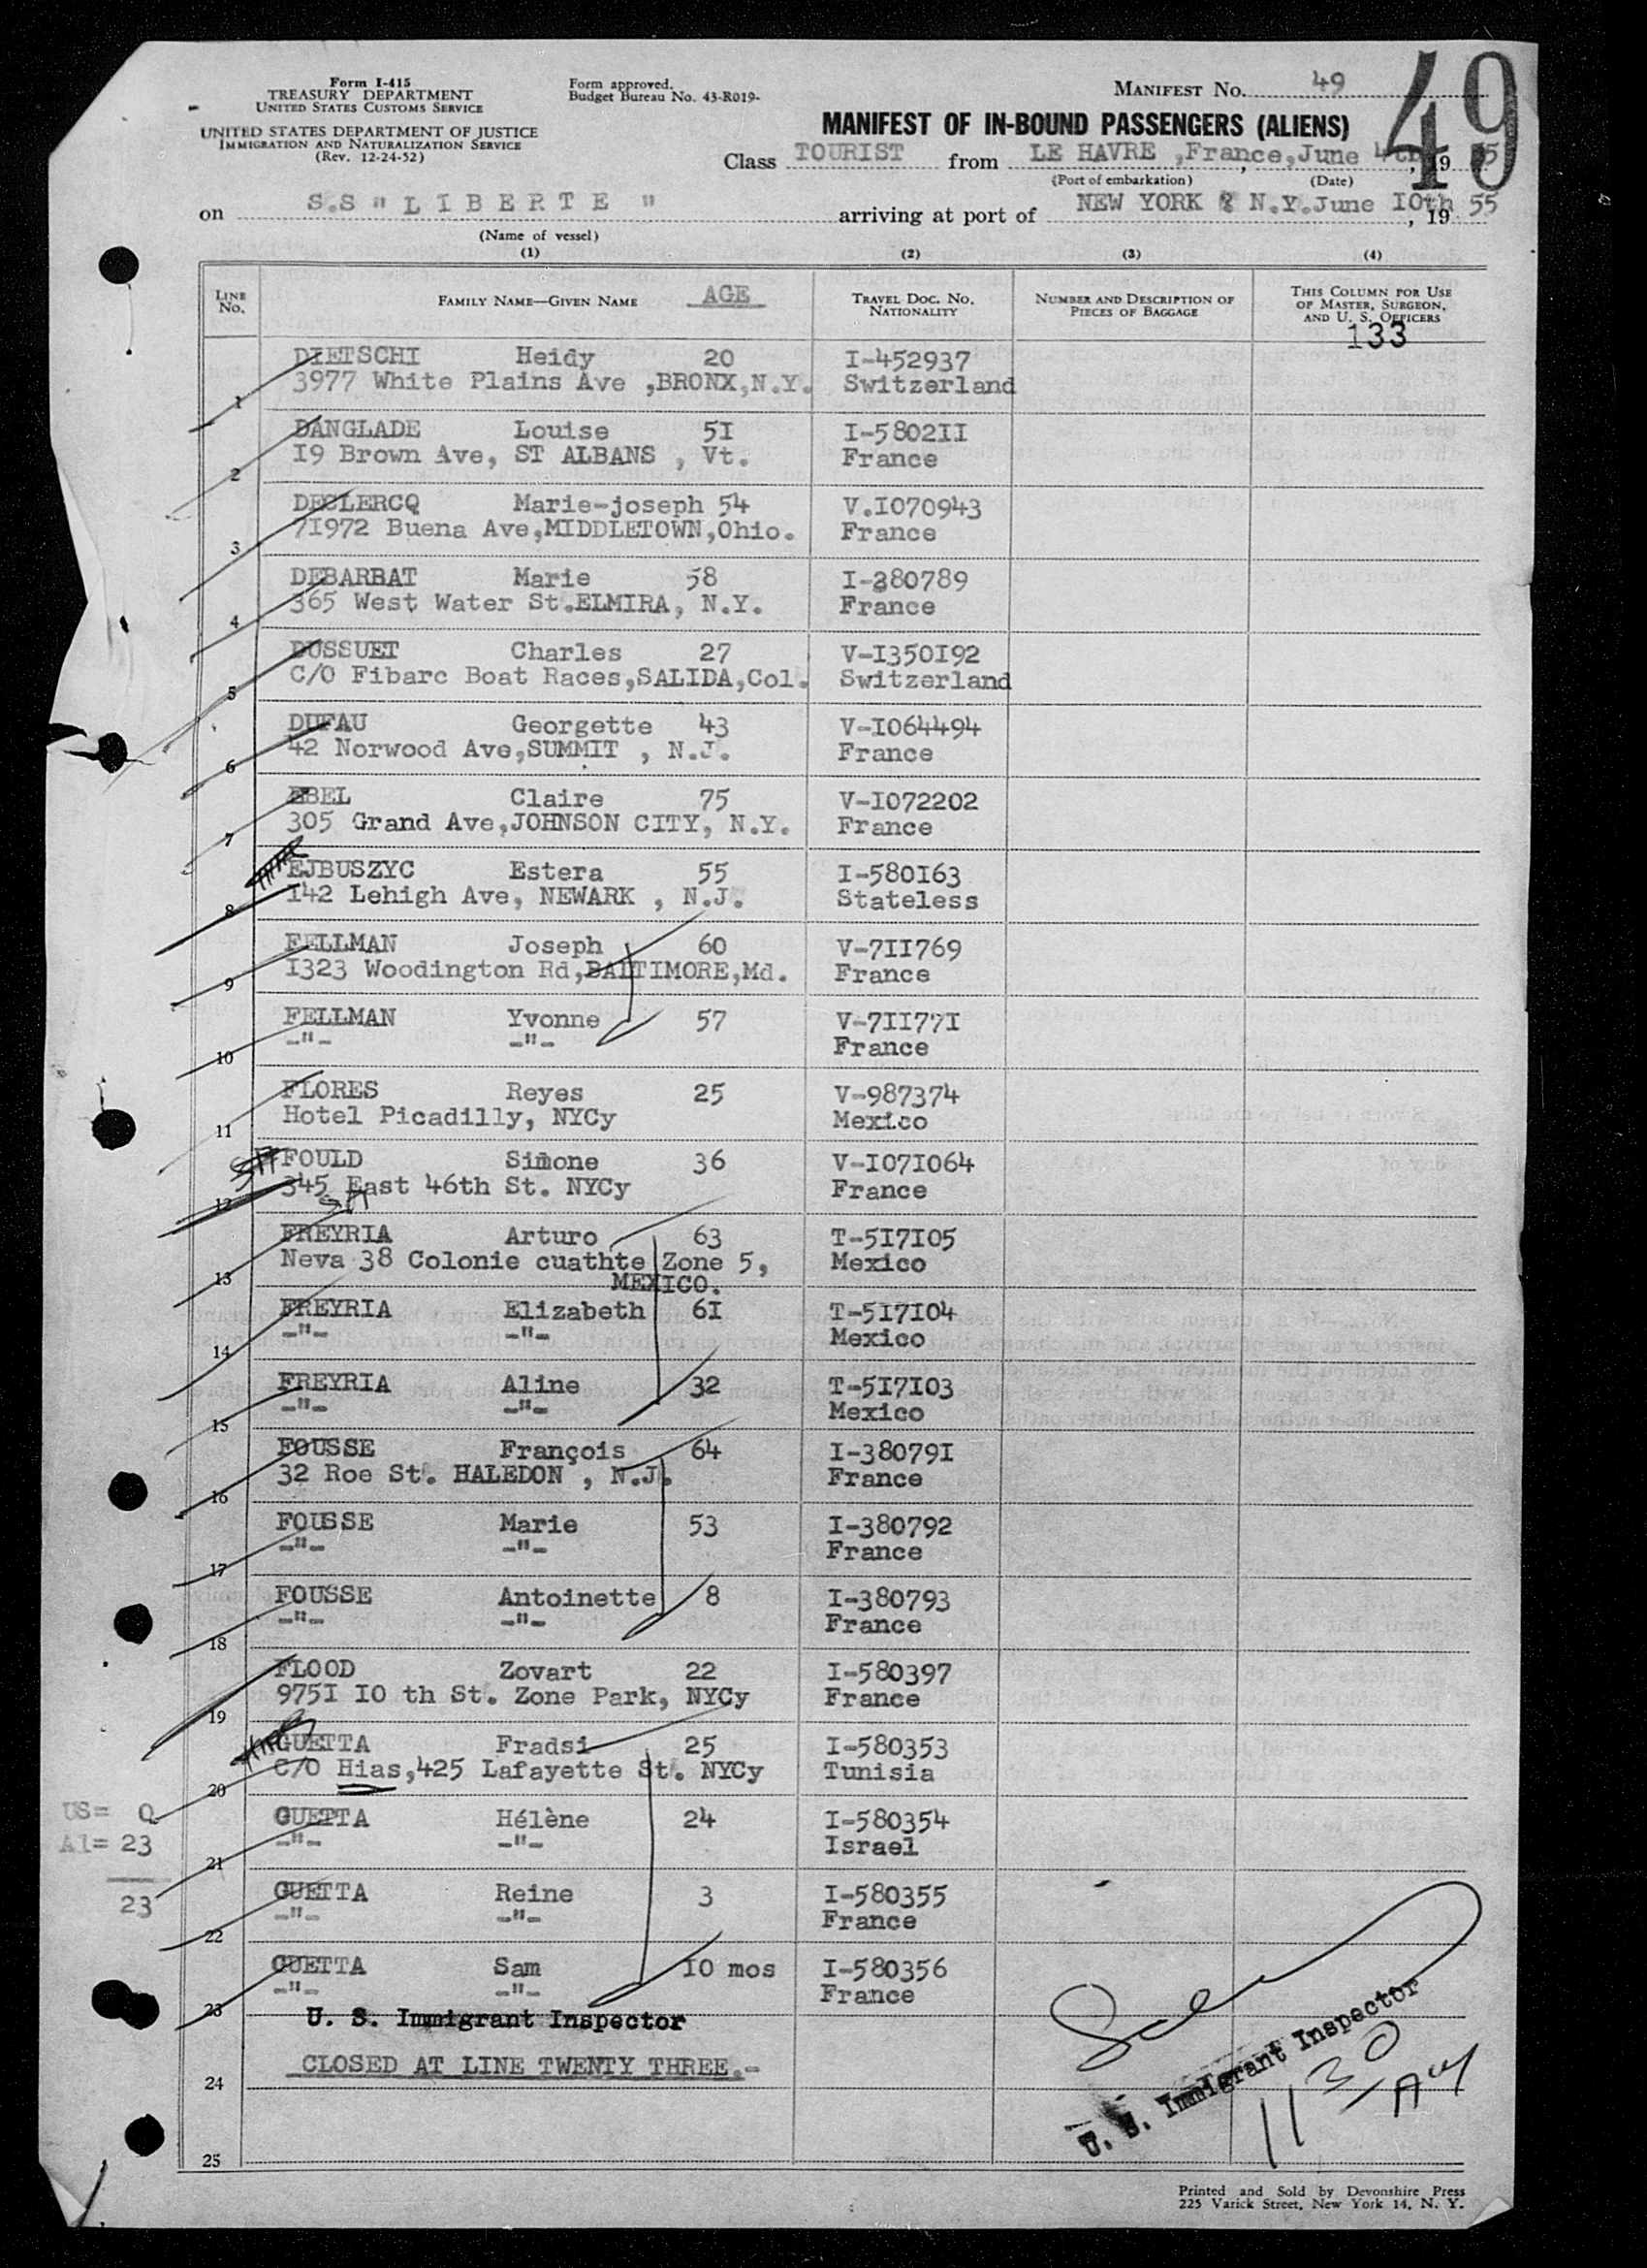 Form I-415
TREASURY DEPARTMENT
UNITED STATES CUSTOMS SERVICE
UNITED STATES DEPARTMENT OF JUSTICE
IMMIGRATION AND NATURALIZATION SERVICE
(Rev. 12-24-52)
Form approved.
Budget Bureau No. 43-R019-
MANIFEST No. 49
49
MANIFEST OF IN-BOUND PASSENGERS (ALIENS)
Class TOURIST from LE HAVRE ,France,June 4th, 19 55
(Port of embarkation) (Date)
on S.S " L I B E R T E " arriving at port of NEW YORK N.Y.June I0th, 19 55
(Name of vessel)
(1) (2) (3) (4)
LINE No. FAMILY NAME—GIVEN NAME AGE TRAVEL DOC. NO. NATIONALITY NUMBER AND DESCRIPTION OF PIECES OF BAGGAGE THIS COLUMN FOR USE OF MASTER, SURGEON, AND U. S. OFFICERS
133
DIETSCHI Heidy 20 I-452937
1 3977 White Plains Ave ,BRONX,N.Y. Switzerland
DANGLADE Louise 5I I-5802II
2 I9 Brown Ave, ST ALBANS , Vt. France
DECLERCQ Marie-joseph 54 V.I070943
3 7I972 Buena Ave,MIDDLETOWN,Ohio. France
DEBARBAT Marie 58 I-380789
4 365 West Water St.ELMIRA, N.Y. France
DUSSUET Charles 27 V-I350I92
5 C/O Fibarc Boat Races,SALIDA,Col. Switzerland
DUFAU Georgette 43 V-I064494
6 42 Norwood Ave,SUMMIT , N.J. France
EBEL Claire 75 V-I072202
7 305 Grand Ave,JOHNSON CITY, N.Y. France
EJBUSZYC Estera 55 I-580I63
8 I42 Lehigh Ave, NEWARK , N.J. Stateless
FELLMAN Joseph 60 V-7II769
9 I323 Woodington Rd,BALTIMORE,Md. France
FELLMAN Yvonne 57 V-7II77I
10 -"- -"- France
FLORES Reyes 25 V-987374
11 Hotel Picadilly, NYCy Mexico
FOULD Simone 36 V-I07I064
12 345 East 46th St. NYCy France
FREYRIA Arturo 63 T-5I7I05
13 Neva 38 Colonie cuathte Zone 5, Mexico
MEXICO.
FREYRIA Elizabeth 6I T-5I7I04
14 -"- -"- Mexico
FREYRIA Aline 32 T-5I7I03
15 -"- -"- Mexico
FOUSSE François 64 I-38079I
16 32 Roe St. HALEDON , N.J. France
FOUSSE Marie 53 I-380792
17 -"- -"- France
FOUSSE Antoinette 8 I-380793
18 -"- -"- France
FLOOD Zovart 22 I-580397
19 975I I0 th St. Zone Park, NYCy France
GUETTA Fradsi 25 I-580353
20 C/O Hias,425 Lafayette St. NYCy Tunisia
US= 0
GUETTA Hélène 24 I-580354
Al= 23
21 -"- -"- Israel
23
GUETTA Reine 3 I-580355
22 -"- -"- France
GUETTA Sam I0 mos I-580356
23 -"- -"- France
U. S. Immigrant Inspector
24 CLOSED AT LINE TWENTY THREE.-
U. S. Immigrant Inspector
11 30
AM
25
Printed and Sold by Devonshire Press
225 Varick Street, New York 14, N. Y.